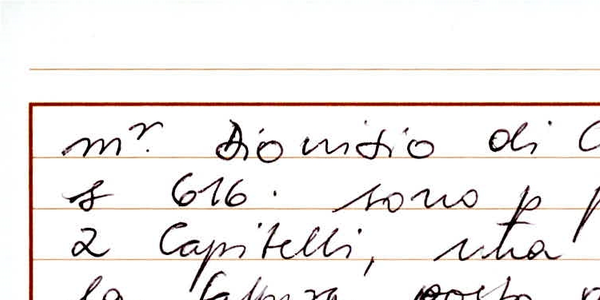 mʳ. Dionisio di
£ 616. sono p
2 Capitelli, una
la posto